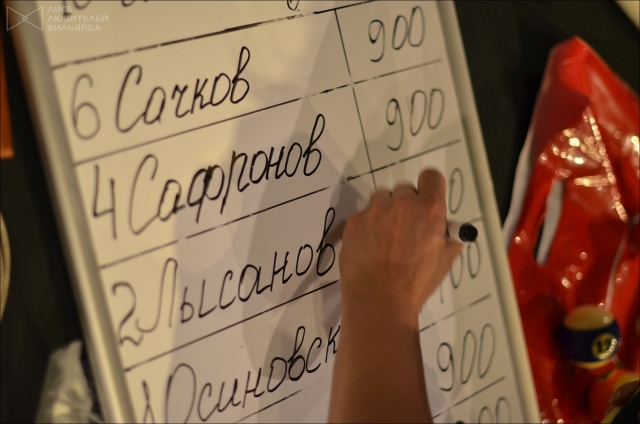 ЛИГА
ЛЮБИТЕЛЕЙ
БИЛЬЯРДА
6 Сачков 900
4 Сафронов 900
2 Лысанов
900